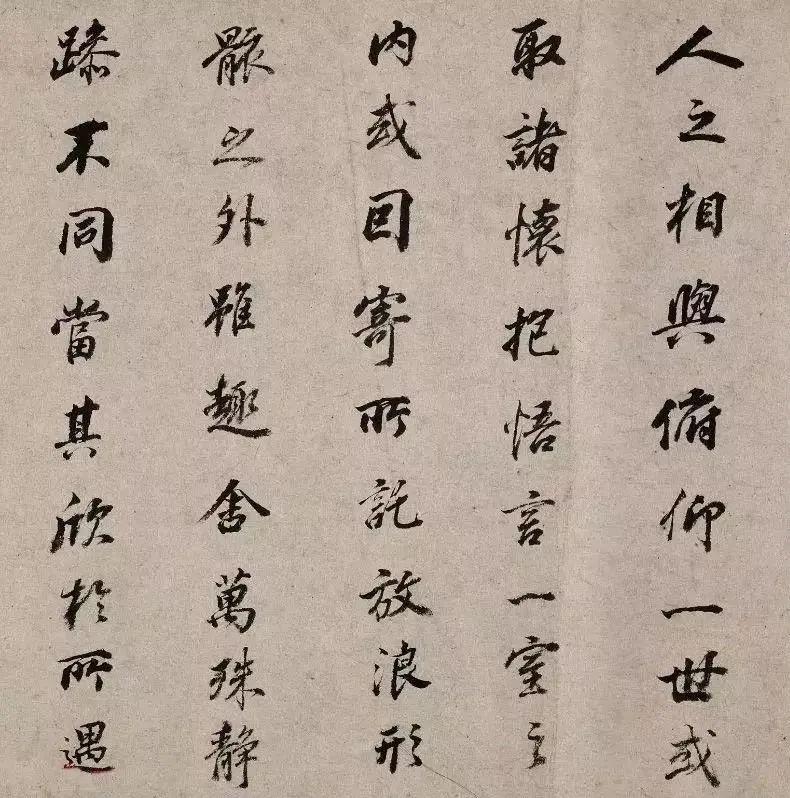 人之相與俯仰一世或
取諸懷抱悟言一室之
內或因寄所託放浪形
骸之外雖趣舍萬殊静
躁不同當其欣於所遇